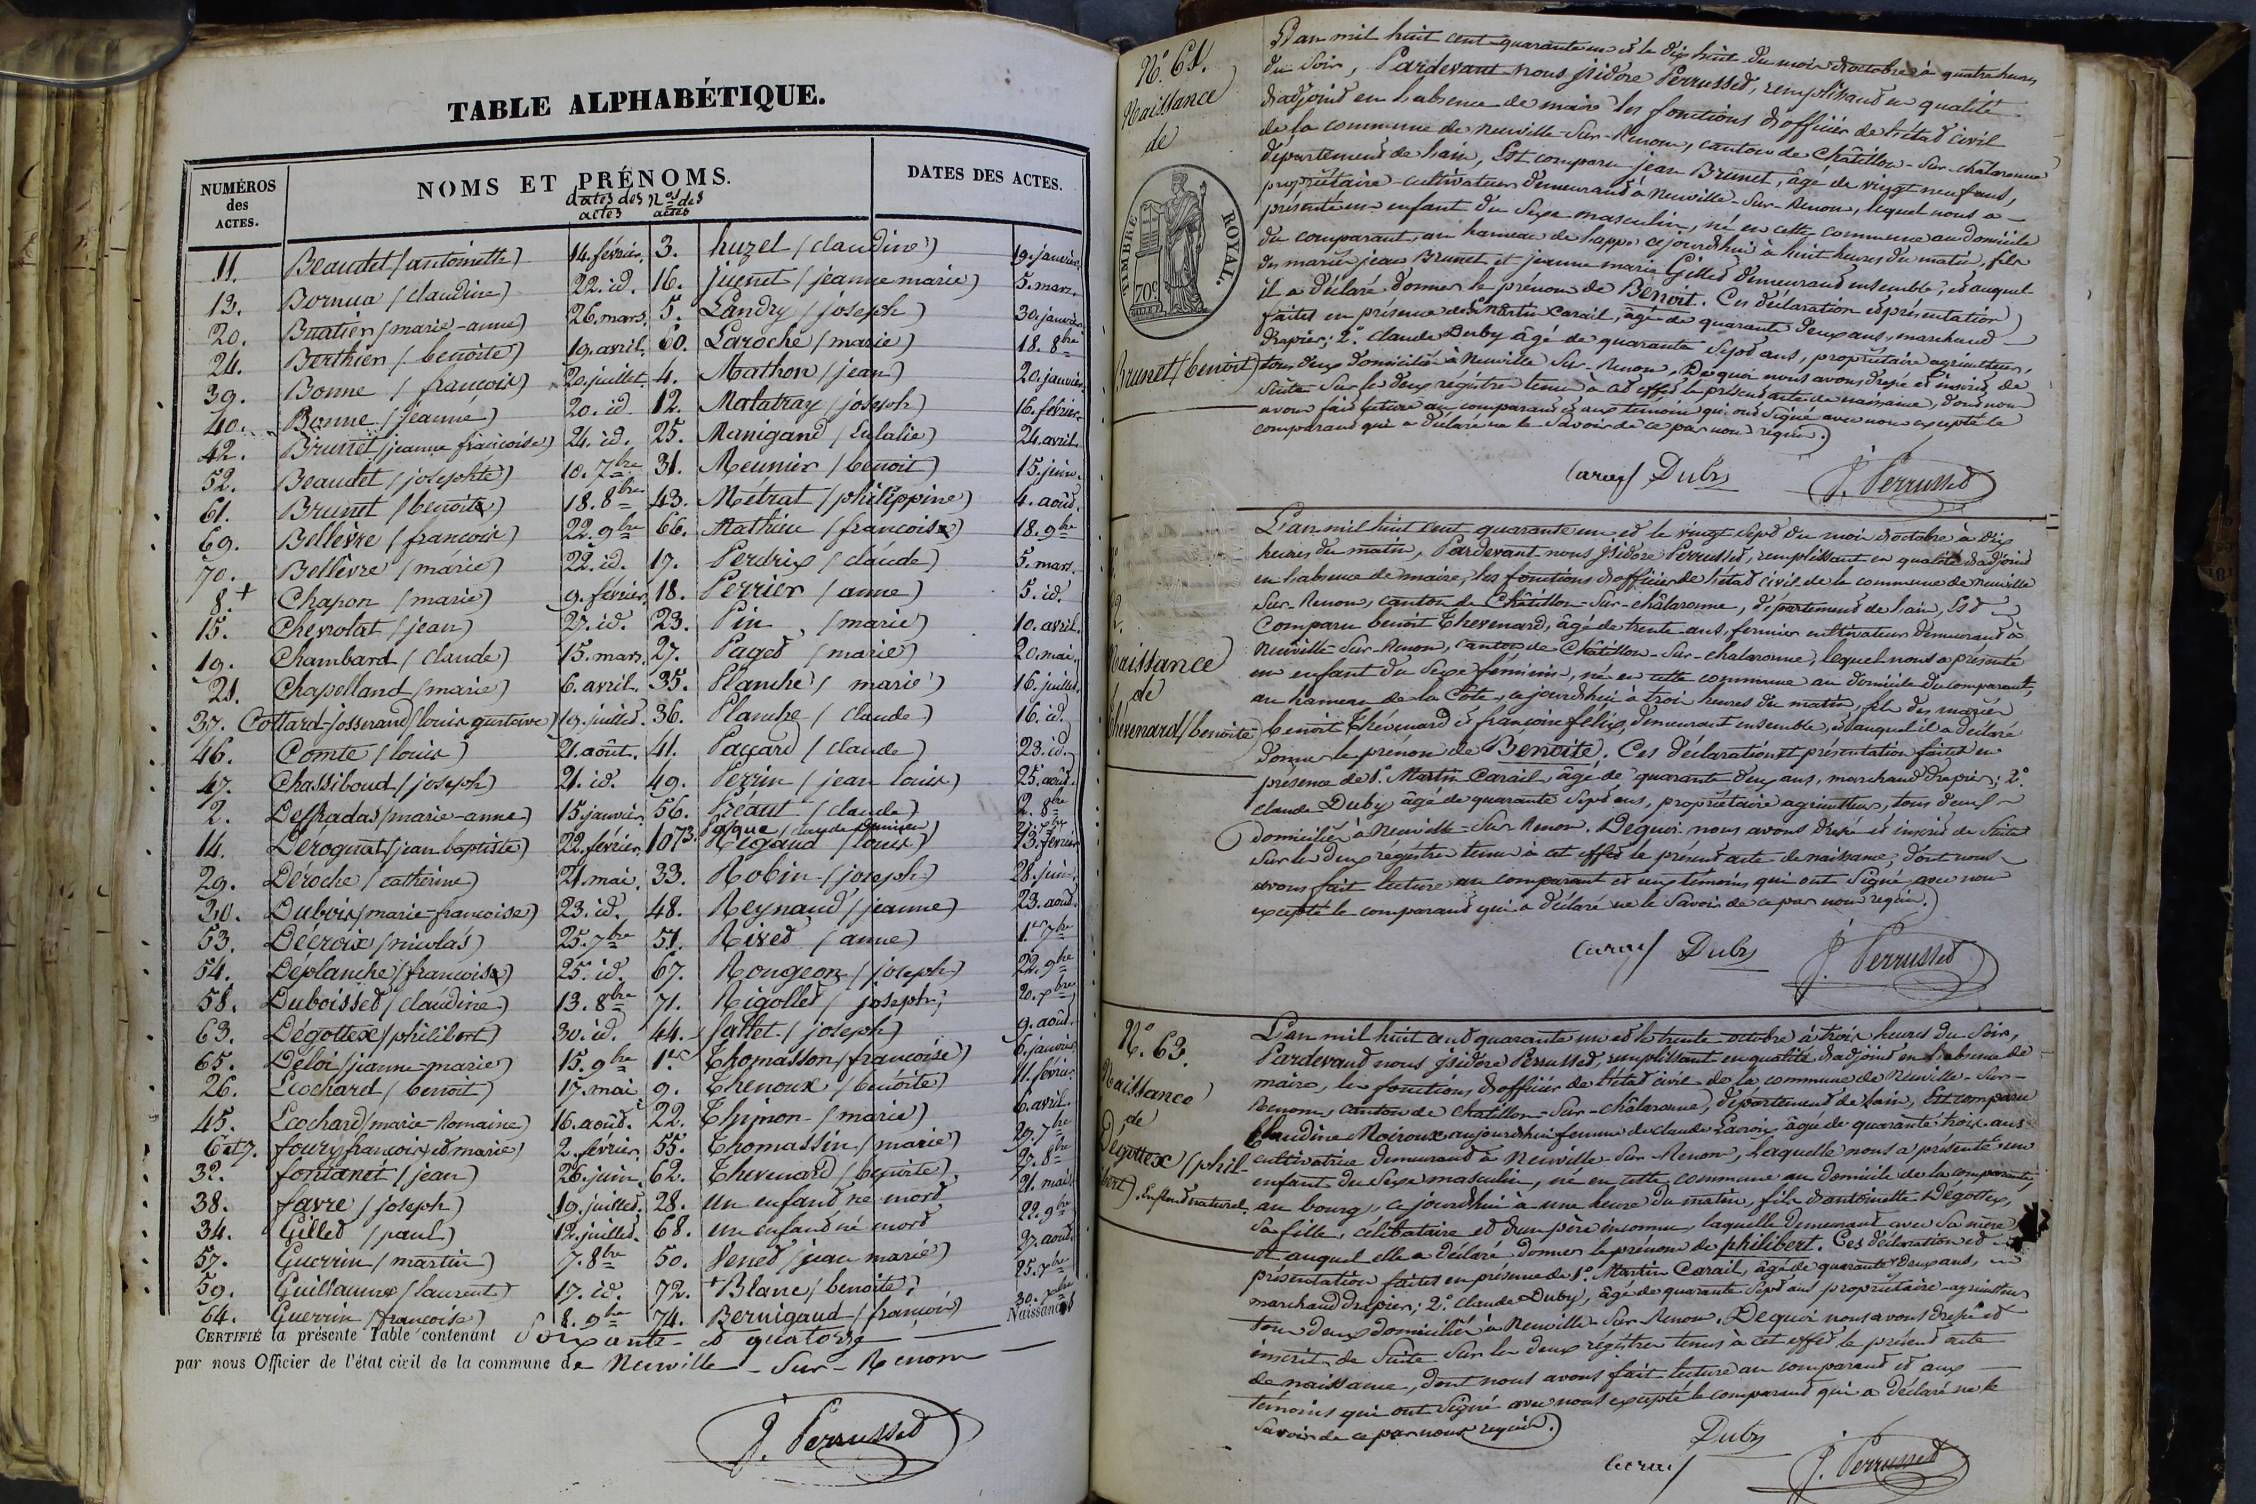 TABLE ALPHABÉTIQUE.
NUMÉROS des ACTES. NOMS ET PRÉNOMS. dates des actes Nos des actes DATES DES ACTES.
11. Beaudet (antoinette) 14. février. 3. huzel (claudine) 19. janvier.
13. Bornua (claudine) 22. id. 16. juenet (jeanne marie) 5. mars.
20. Buatier (marie-anne) 26. mars. 5. Landry (joseph) 30. janvier.
24. Berthier (benoite) 19. avril. 60. Laroche (marie) 18. 8bre
39. Bonne (françois) 20. juillet. 4. Mathon (jean) 20. janvier.
40. Bonne (jeanne) 20. id. 12. Malatray (joseph) 16. février.
42. Brunet (jeanne françoise) 24. id. 25. Manigand (Eulalie) 24. avril.
52. Beaudet (josephte) 10. 7bre 31. Meunier (benoit) 15. juin.
61. Brunet (benoit) 18. 8bre 43. Métrat (philippine) 4. août.
69. Bellèvre (françois) 22. 9bre 66. Mathieu (françois) 18. 9bre
70. Bellèvre (marie) 22. id. 17. Perdrix (claude) 5. mars.
8. + Chapon (marie) 9. février. 18. Perrier (anne) 5. id.
15. Chevrolat (jean) 27. id. 23. Pin (marie) 10. avril.
19. Chambard (claude) 15. mars. 27. Paget (marie) 20. mai.
21. Chapelland (marie) 6. avril. 35. Planche (marie) 16. juillet.
37. Cottard-josserand (louis gustave) 19. juillet. 36. Planche (claude) 16. id.
46. Comte (louis) 21. août. 41. Paccard (claude) 23. id.
47. Chassiboud (joseph) 21. id. 49. Perrin (jean louis) 25. août.
2. Desfradas (marie-anne) 15. janvier. 56. Préaut (claude) 2. 8bre
14. Derognat (jean baptiste) 22. février. 10 73. Pasque (claude Rigaud (louis) 13. février
29. Déroche (catherine) 21. mai. 33. Robin (joseph) 28. juin.
30. Dubois (marie-françoise) 23. id. 48. Reynaud (jeanne) 23. août.
53. Décroix (nicolas) 25. 7bre 51. Rivet (anne) 1er 7bre
54. Déplanche (françois) 25. id. 67. Rougeon (joseph) 22. 9bre
58. Duboisset (claudine) 13. 8bre 71. Rigollet (joseph) 20. xbre
63. Dégottex (philibert) 30. id. 44. Sallet (joseph) 9. août.
65. Déloi (jeanne-marie) 15. 9bre 1er Thomasson (françoise) 6. janvier
26. Ecochard (benoit) 17. mai 9. Thénoux (benoite) 11. février
45. Ecochard (marie-Romaine) 16. août. 22. Thinon (marie) 6. avril.
6 et 7. foury (françois et marie) 2. février. 55. Thomassin (marie) 29. 7bre
32. fontanet (jean) 26. juin. 62. Thevenard (benoite) 27. 8bre
38. favre (joseph) 19. juillet. 28. un enfant né mort 21. mai
34. Gillet (paul) 12. juillet. 68. un enfant né mort 22. 9bre
57. Guerrin (martin) 7. 8bre 50. Venet (jean marie) 27. août.
59. Guillaumex (laurent) 17. id. 72. + Blanc (benoite) 25. xbre
64. Guerrin (françoise) 8. 9bre 74. Bernigaud (françois) 30. xbre
CERTIFIÉ la présente Table contenant Soixante et quatorze Naissances
par nous Officier de l'état civil de la commune de Neuville-Sur-Renom
J. Perrusset
N° 61.
Naissance
de
TIMBRE ROYAL.
70c
Brunet (benoit)
L'an mil huit cent quarante un et le dix huit du mois d'octobre à quatre heures
du Soir, Pardevant nous jsidore Perrusset, remplissant en qualité
d'adjoint en l'absence de maire les fonctions d'officier de l'état civil
de la commune de neuville-Sur-Renom, canton de Châtillon-Sur-châlaronne
département de l'ain, Est comparu jean Brunet, âgé de vingt neuf ans,
propriétaire-cultivateur demeurant à Neuville-Sur-Renon, lequel nous a
présenté un enfant du Sexe masculin, né en cette commune au domicile
du comparant, au hameau de cejourd'hui à huit heures du matin, fils
des mariés jean Brunet et jeanne marie Gillet demeurant ensemble, et auquel
il a déclaré donner le prénom de Benoit. Ces déclaration et présentation
faites en présence de 1° Martin Carail, âgé de quarante deux ans, marchand
drapier; 2° claude Duby âgé de quarante Sept ans, propriétaire agriculteur,
tous deux domiciliés à Neuville Sur-Renon. De quoi nous avons dressé et inscrit de
Suite Sur les deux régistres tenus à cet effet le présent acte de naissance, dont nous
avons fait lecture au comparant et aux temoins qui ont Signé avec nous excepté le
comparant qui a déclaré ne le Savoir de ce par nous requis.)
Carail Duby J. Perrusset
2.
Naissance
de
Thevenard (benoite)
L'an mil huit cent quarante un et le vingt Sept du mois d'octobre à dix
heures du matin, Pardevant nous jsidore Perrusset, remplissant en qualité d'adjoint
en l'absence de maire, les fonctions d'officier de l'état civil de la commune de neuville
Sur-Renom, canton de Châtillon-Sur-châlaronne, département de l'ain, Est
Comparu benoit Thevenard, âgé de trente ans, fermier cultivateur demeurant à
Neuville-Sur-Renom, canton de Châtillon-Sur-chalaronne, lequel nous a présenté
un enfant du Sexe féminin, né en cette commune au domicile du comparant,
au hameau de la Côte, ce jourd'hui à trois heures du matin, fils des mariés
benoit Thévenard et françoise félix, demeurant ensemble, et auquel il a déclaré
donner le prenom de Benoite. Ces déclaration et présentation faites en
présence de 1° Martin Carail, âgé de quarante deux ans, marchand drapier; 2°
claude Duby âgé de quarante Sept ans, propriétaire agriculteur, tous deux
domiciliés à Neuville-Sur Renon. De quoi nous avons dressé et inscrit de Suite
Sur les deux régistres tenus à cet effet le présent acte de naissance, dont nous
avons fait lecture au comparant et aux témoins qui ont Signé avec nous
excepté le comparant qui a déclaré ne le Savoir de ce par nous requis.)
Carail Duby J. Perrusset
N° 63.
Naissance
de
Dégottex (phili-
bert). Enfant naturel.
L'an mil huit cent quarante un et le trente octobre à trois heures du Soir,
Pardevant nous jsidore Perrusset, remplissant en qualité d'adjoint en l'absence de
maire, les fonctions d'officier de l'état civil de la commune de Neuville-Sur-
Renom, canton de Chatillon-Sur-châlaronne, département de l'ain, Est comparu
Claudine Noiroux aujourd'hui femme de claude Lacroix âgée de quarante trois ans
cultivatrice demeurant à Neuville-Sur-Renom, Laquelle nous a présenté un
enfant du Sexe masculin, né en cette commune au domicile de la comparante,
au bourg, ce jourd'hui à une heure du matin, fils d'antoinette Dégottex,
Sa fille, célibataire et d'un père inconnu, laquelle demeurant avec Sa mère,
et auquel elle a déclaré donner le prénom de philibert. Ces déclaration et
présentation faites en présence de 1° Martin Carail, âgé de quarante deux ans,
marchand drapier; 2° Claude Duby, âgé de quarante Sept ans propriétaire-agriculteur
tous deux domiciliés à Neuville-Sur-Renon. De quoi nous avons dressé et
inscrit de Suite Sur les deux régistres tenus à cet effet le présent acte
de naissance, dont nous avons fait lecture au comparant et aux
témoins qui ont Signé avec nous excepté le comparant qui a déclaré ne le
Savoir de ce par nous requis.)
Duby
Carail J. Perrusset